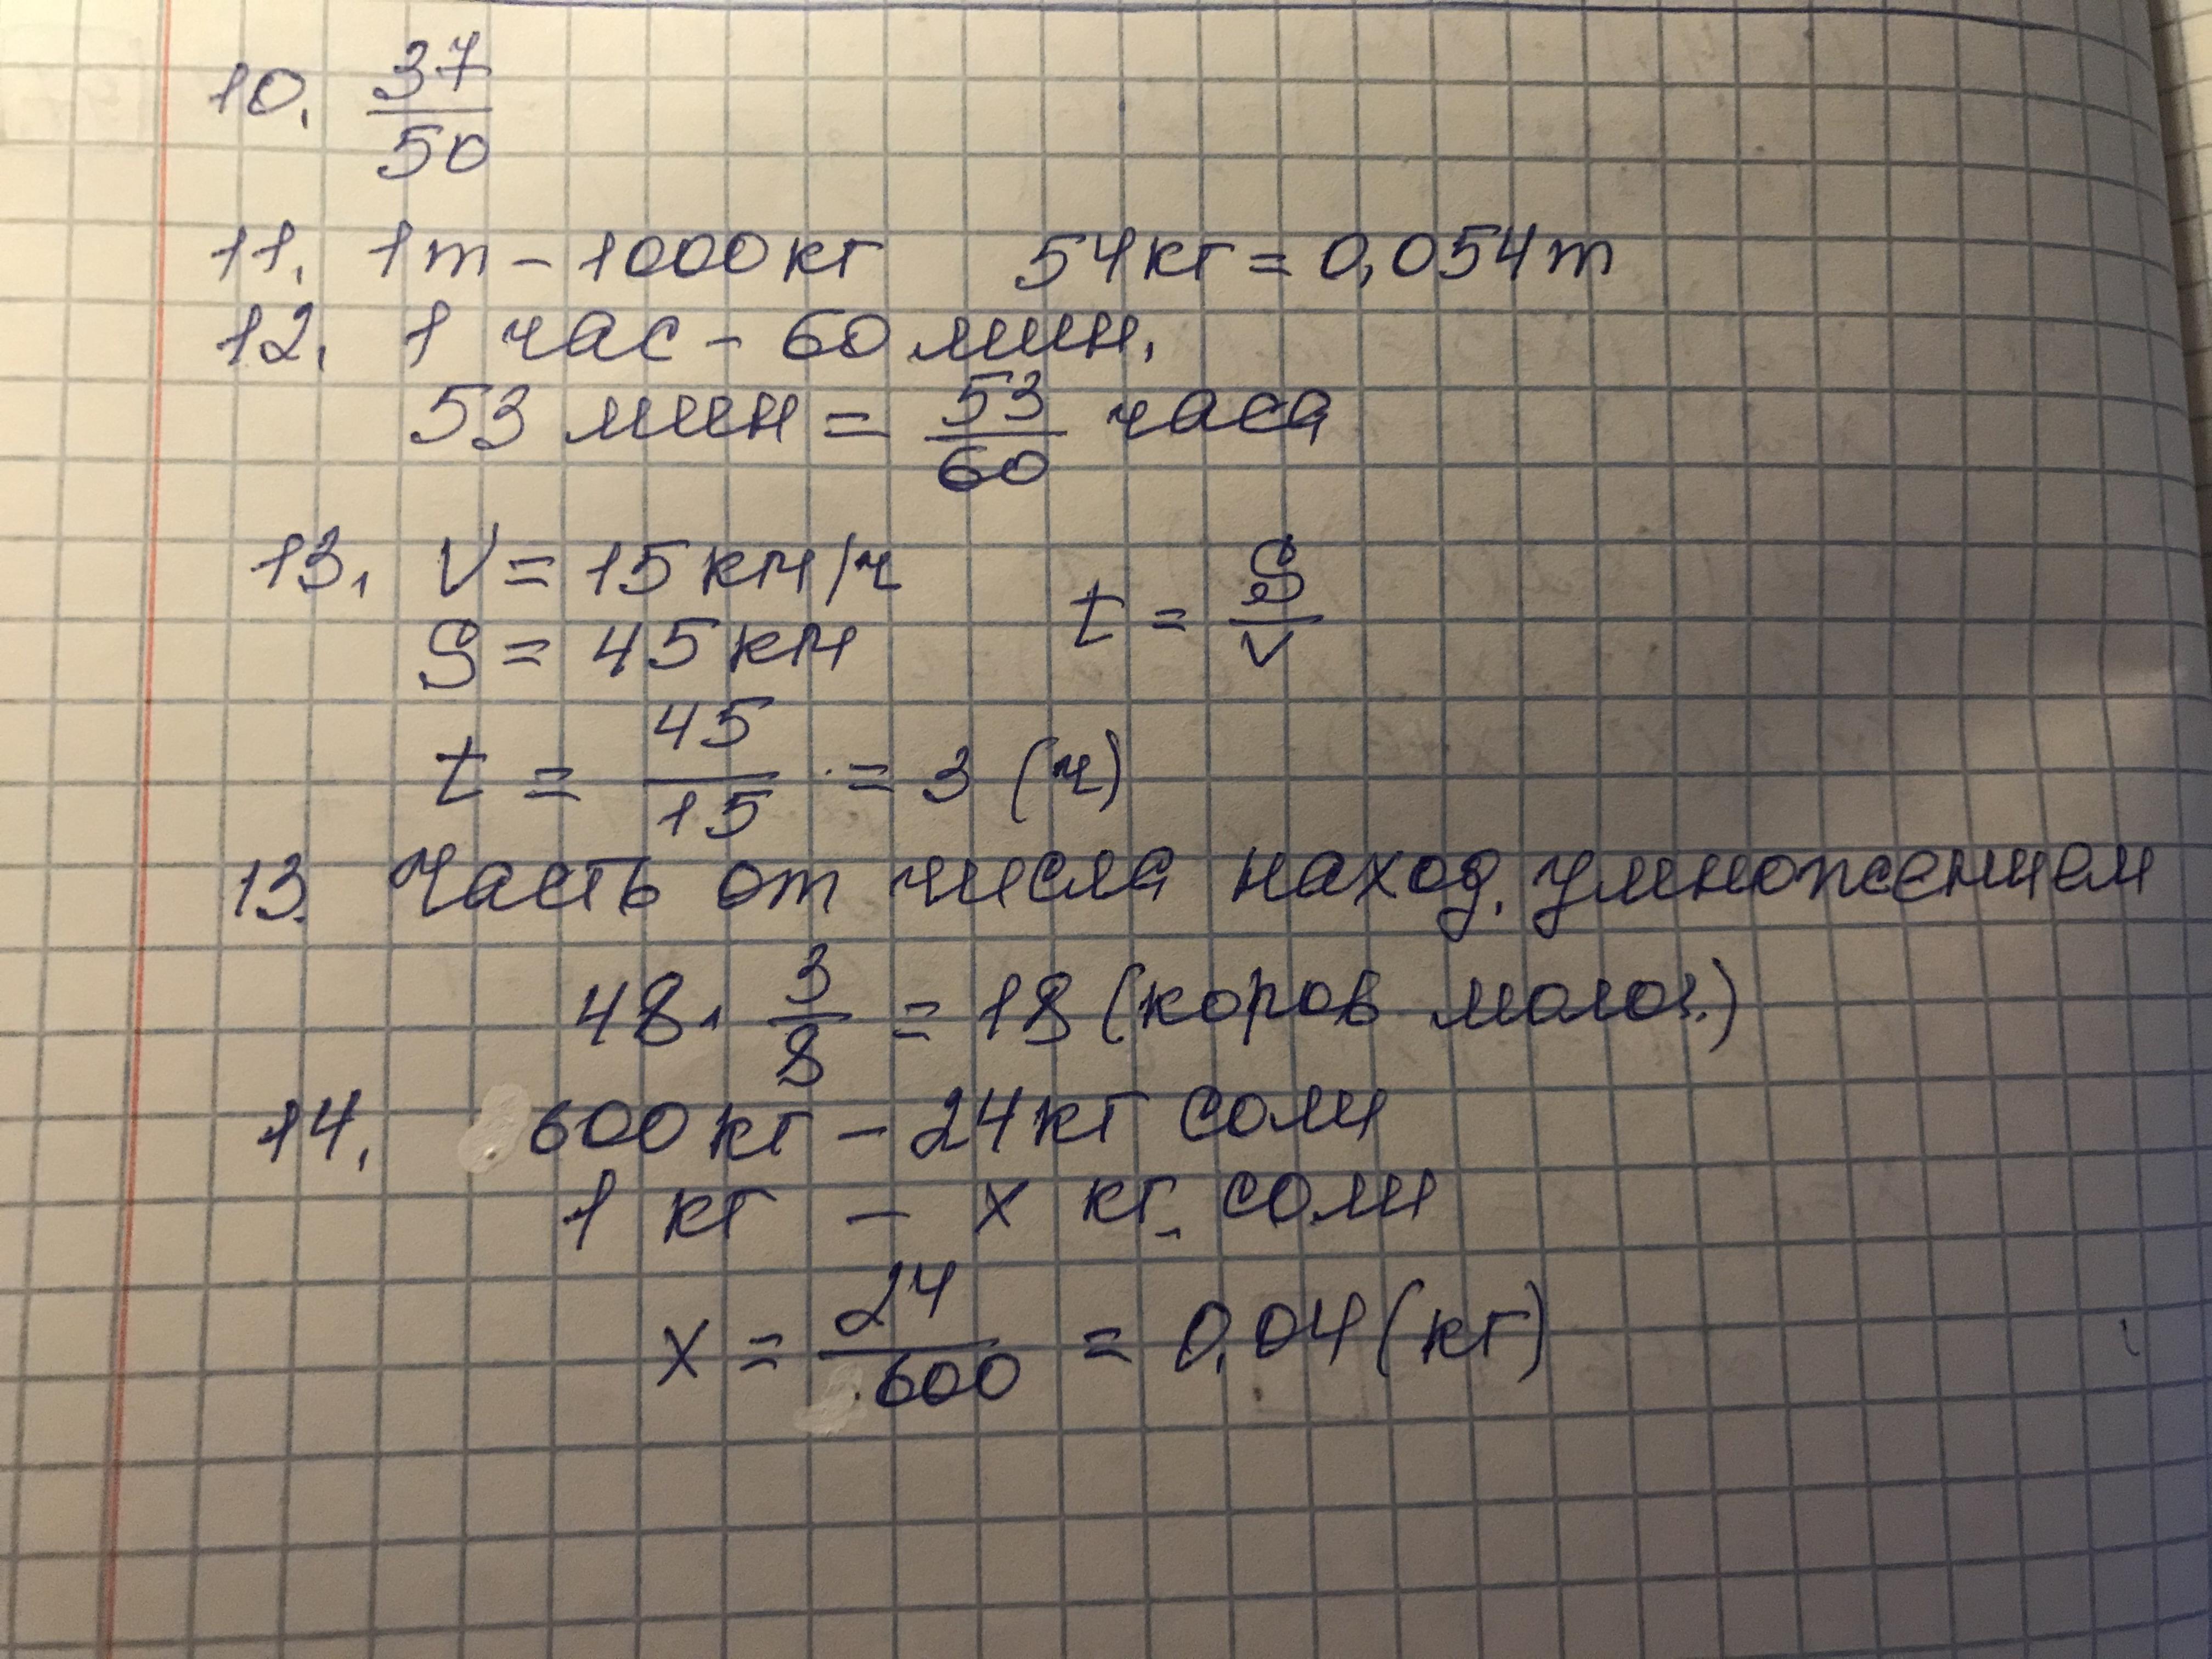 10. 37/50
11. 1т - 1000кг 54кг = 0,054т
12. 1 час - 60 мин.
53 мин = 53/60 часа
13. V = 15 км/ч
S = 45 км t = S/V
t = 45/15 = 3 (ч)
13. Часть от числа наход. умножением
48 · 3/8 = 18 (коров молоч.)
14. 600 кг - 24 кг соли
1 кг - x кг. соли
x = 24/600 = 0,04 (кг)